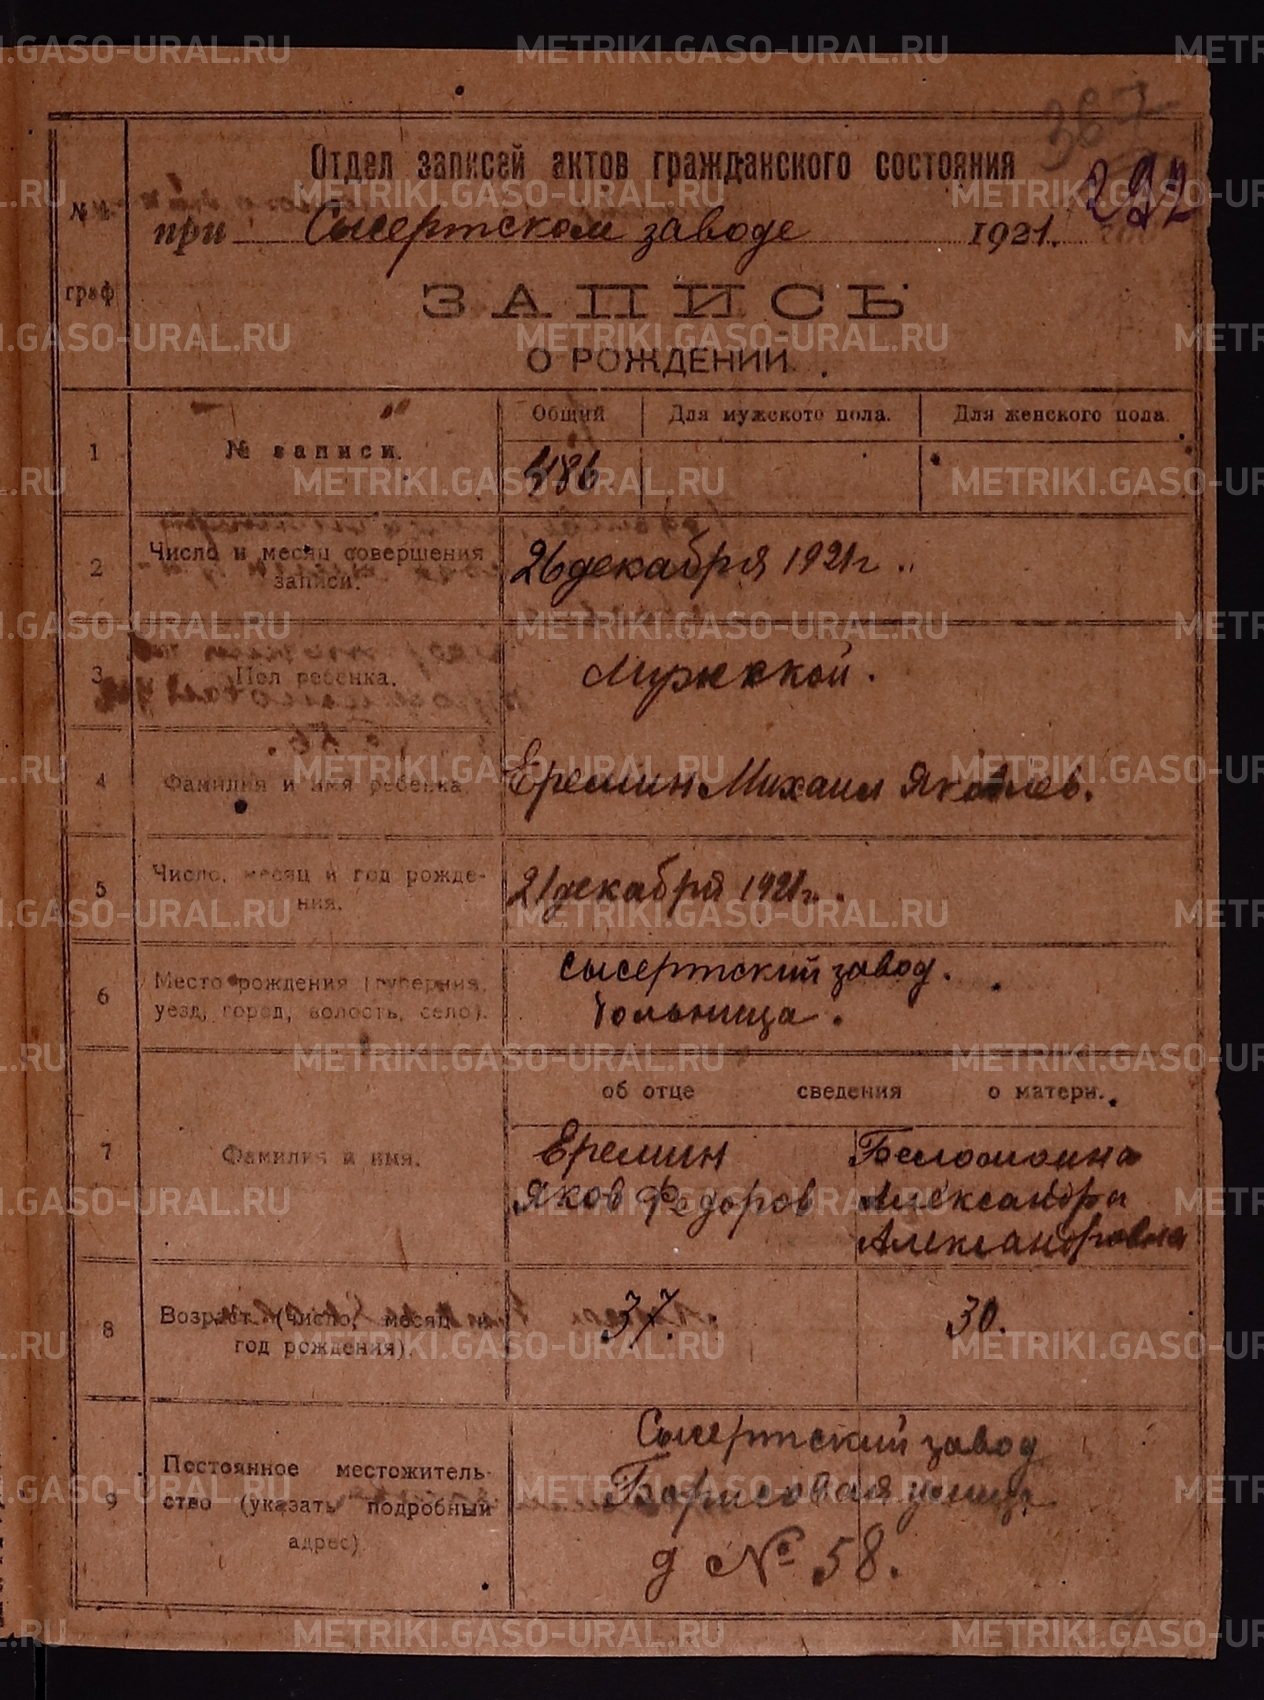 367
292
Отдел записей актов гражданского состояния
№№
граф
при Сысертском заводе 1921.
ЗАПИСЬ
О РОЖДЕНИИ.
1
№ записи.
Общий
Для мужского пола.
Для женского пола.
486
2
Число и месяц совершения
записи.
26 декабря 1921 г.
3
Пол ребенка.
Мужской.
4
Фамилия и имя ребенка.
Еремин Михаил Яковлев.
5
Число, месяц и год рожде-
ния.
21 декабря 1921 г.
6
Место рождения (губерния,
уезд, город, волость, село).
Сысертский завод.
больница.
об отце сведения о матери.
7
Фамилия и имя.
Еремин
Яков Федоров
Александра
Александровна
8
Возраст (число, месяц и
год рождения).
37.
30.
9
Постоянное местожитель-
ство (указать подробный
адрес)
Сысертский завод
Борисовая улица
д № 58.
METRIKI.GASO-URAL.RU